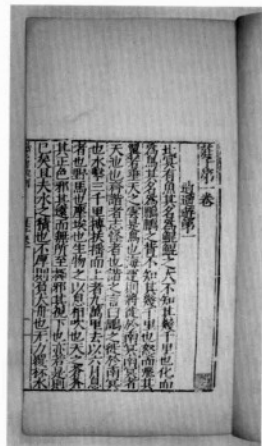 莊子第一卷
逍遙遊第一
北冥有魚其名為鯤鯤之大不知其幾千里也化而
為鳥其名為鵬鵬之背不知其幾千里也怒而飛其
翼若垂天之雲是鳥也海運則將徙於南冥南冥者
天池也齊諧者志怪者也諧之言曰鵬之徙於南冥
也水擊三千里摶扶搖而上者九萬里去以六月息
者也野馬也塵埃也生物之以息相吹也天之蒼蒼
其正色邪其遠而無所至極邪其視下也亦若是則
已矣且夫水之積也不厚則負大舟也無力覆杯水